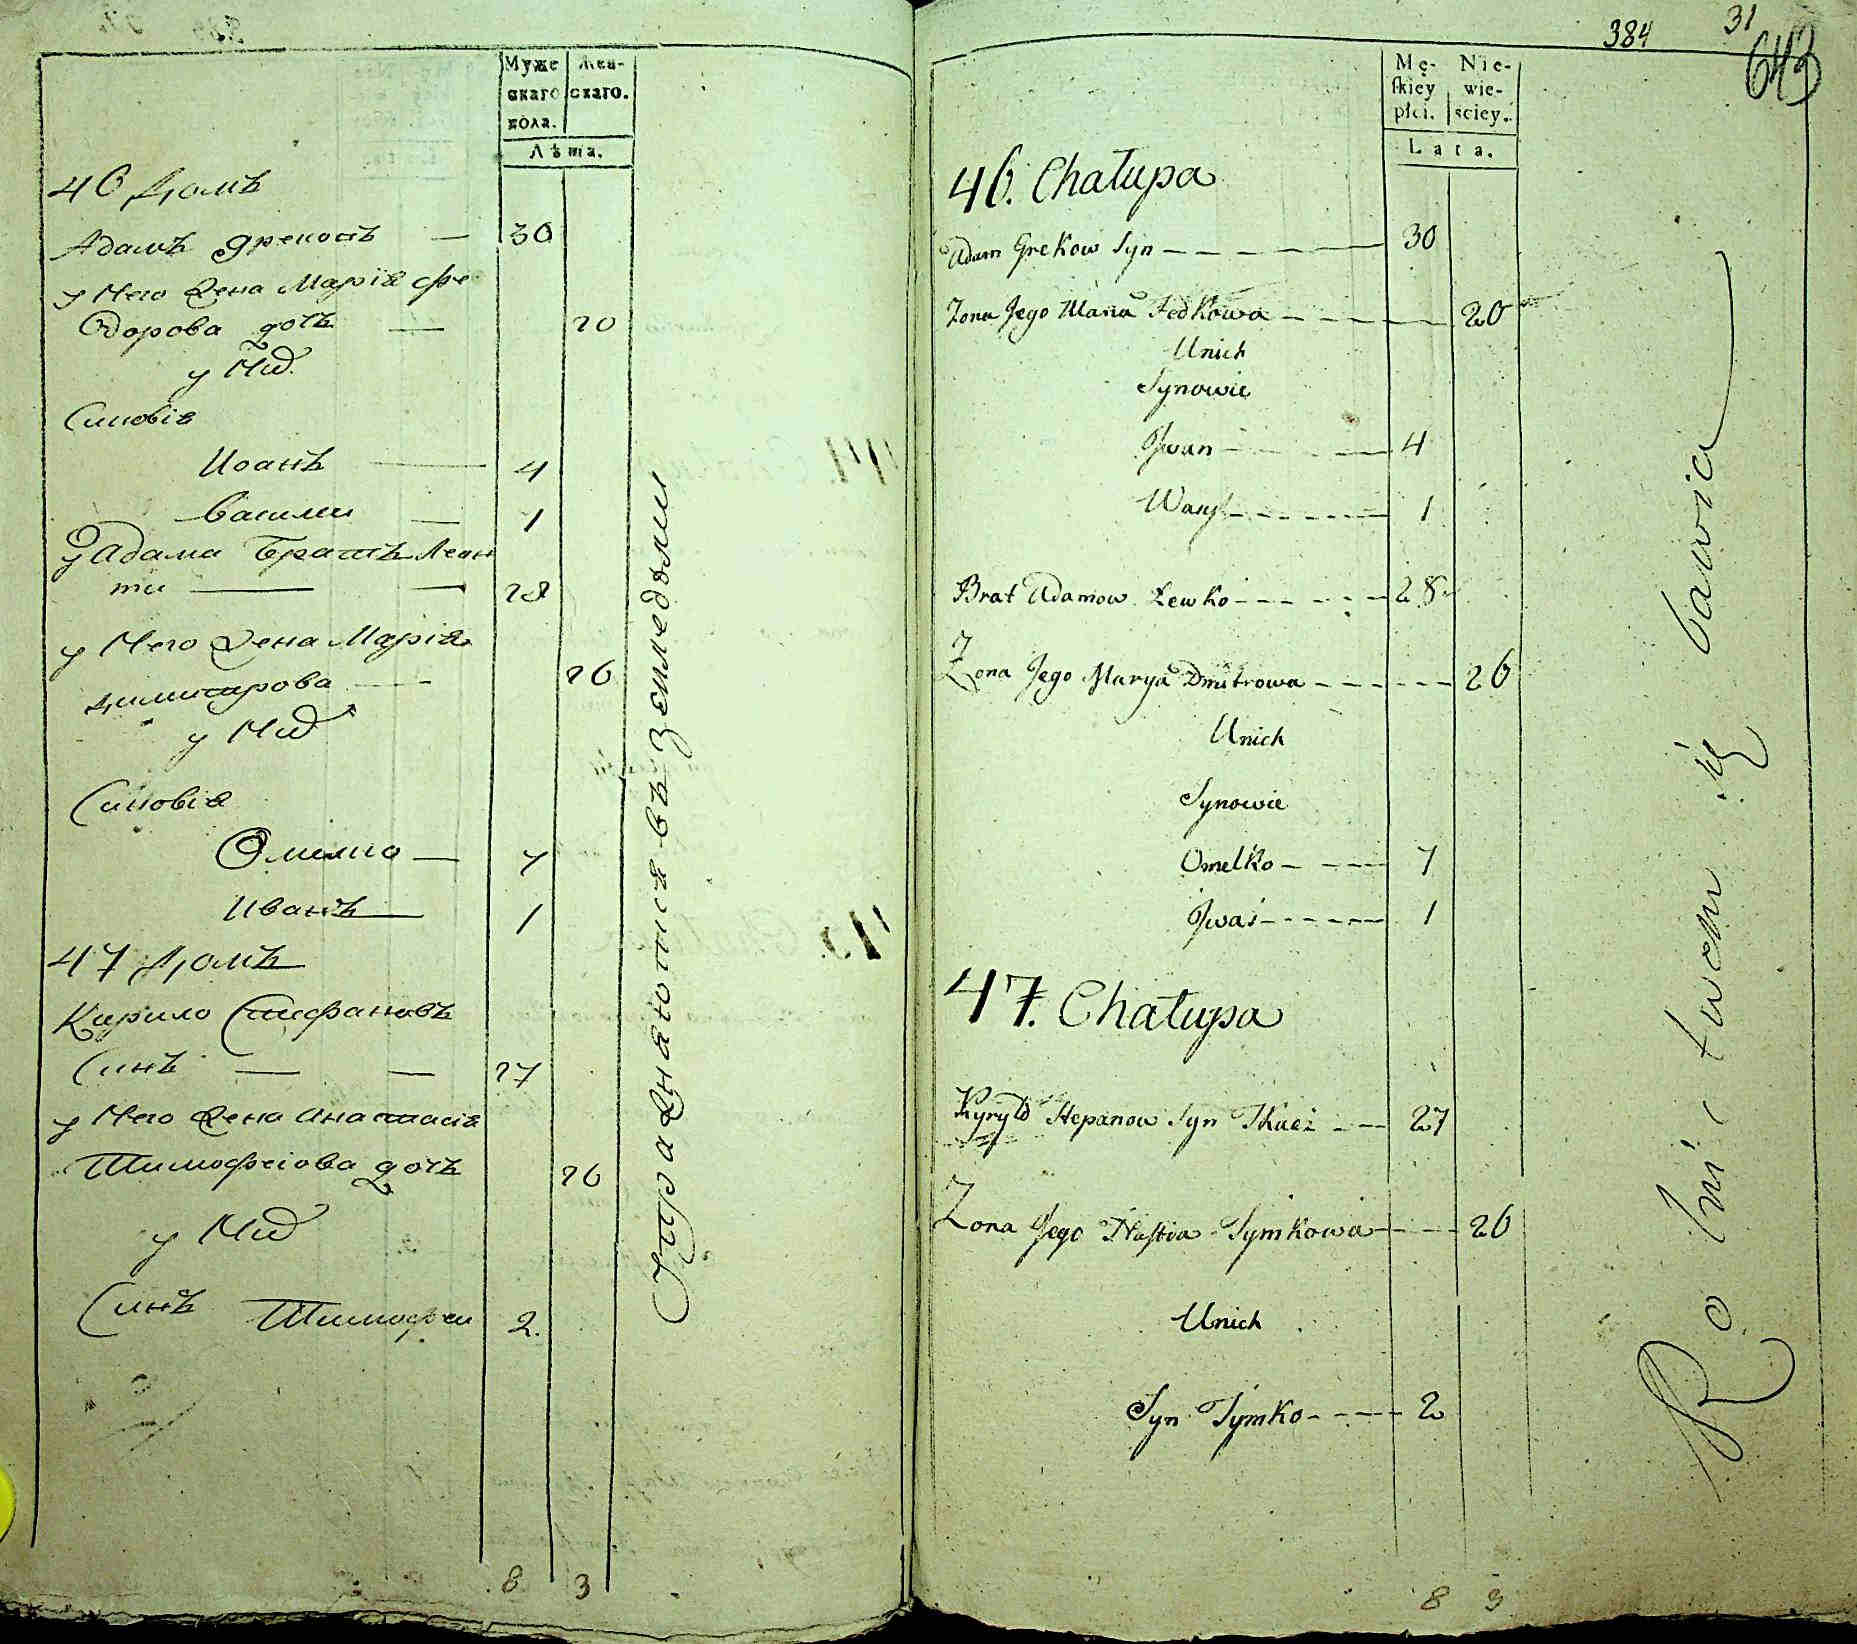 Муже
скаго
пола.
Жен-
скаго.
Лѣта.
46 Домъ
Адамъ Грековъ — 30
у Него Жена Марія Фе
одорова дочь — 20
у Нихъ
Синовія
Иоанъ — 4
Василии — 1
У Адама Братъ Леон
тии — 28
у Него Жена Марія
Димитрова — 26
у Нихъ
Синовія
Омелко — 7
Иванъ — 1
47 Домъ
Кирило Стефановъ
Синъ — — 27
у Него Жена Анастасія
Тимофеiова дочь 26
у Нихъ
Синъ Тимофеи 2.
8 3
Упражняются въ Земледѣлии
384
31
643
Mę-
skiey
płci.
Nie-
wie-
sciey.
Lata.
46. Chałupa
Adam Grekow Syn — 30
Żona Jego Maria Fedkowa — 20
Unich
Synowie
Jwan — 4
Wasyl — 1
Brat Adamow Lewko — 28
Żona Jego Marya Dmitrowa — 26
Unich
Synowie
Omelko — 7
Jwaś — 1
47. Chałupa
Kyryło Stepanow Syn Tkacz — 27
Żona Jego Nastia Tymkowa — 26
Unich
Syn Tymko — 2
8 3
Rolnictwem się bawią